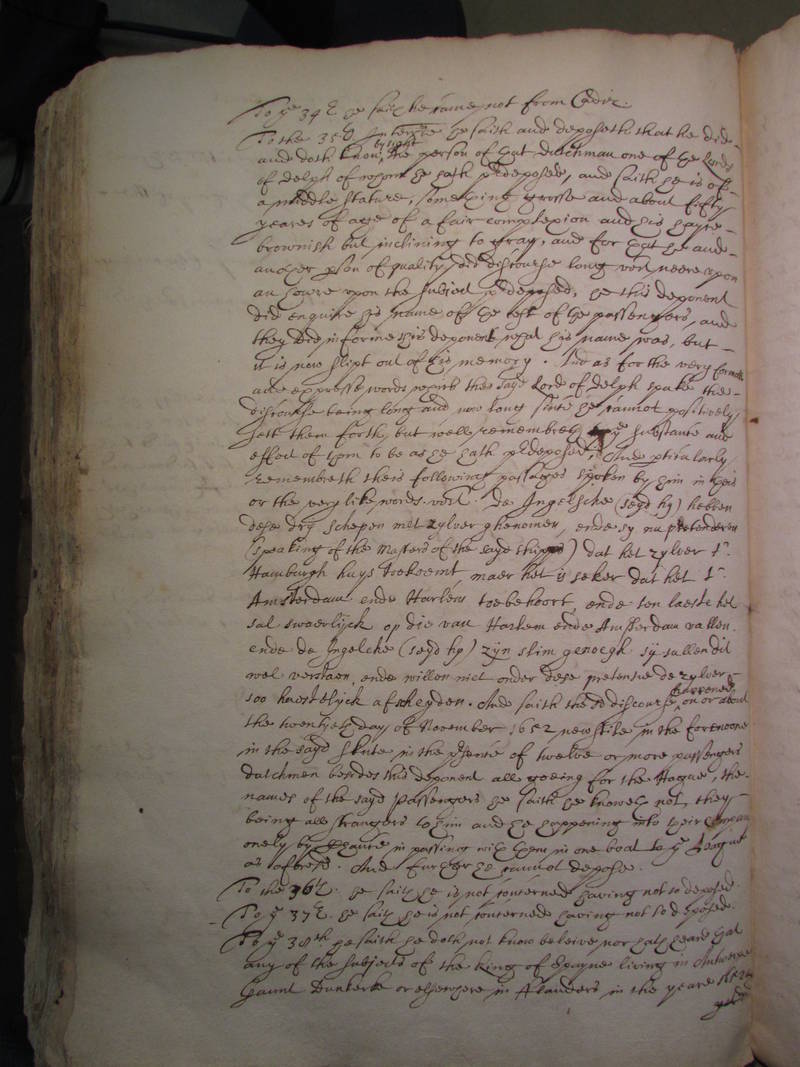 To ye 34th. he saith he came not from Cadiz.
To the 35th Interrie he saith and deposeth that he did
and doth know by sight the person of that dutchman one of the Lords
of delph of whom he hath predeposed, and saith he is of
a middle stature, something grosse and about fifty
yeares of age of a fair complexion and his hayre
brownish but inclining to gray, and for that he and
another pson of quality did discourse long vizt neere upon
an houre upon the subiect predeposed, he this deponent
did enquire his name of the rest of the passengers, and
they did informe this deponent what his name was, but
it is now slipt out of his memory. And as for the very formall
and expresse words which the sayd Lord of delph spake the
discourse being long and now long since he cannot positively
sett them forth, but well remembreth ye substance and
effect of them to be as he hath predeposed, And pticularly
remembreth theis following passages spoken by him in theis
or the very like words. vizt. De Ingelsche (seyd hy) hebben
dese dry schepen met zylver ghenomen, ende sy nu pretenderen
(speaking of the Masters of the sayd shipps) dat het zylver t'
Hamburgh huys toekoemt, maer het is seker dat het t'
Amsterdam ende Harlem toebehoort, ende ten laeste het
sal swaerlijck op die van Harlem ende Amsterdam vallen.
ende de Ingelche (seyd hy) zijn slim genoegh sy sullen dit
wel verstaen, ende willen niet onder dese pretensie de zylver
soo haestelijck afscheyden. And saith the sd discourse happened on or about
the twentyeth day of November 1652 new stile in the forenoone
in the sayd skute in the psence of twelve or more passengers
dutchmen besides this deponent all goeing for the Hague, the
names of the sayd passengers he saith he knoweth not, they
being all strangers to him and he happening into their company
onely by chance in passing with them in one boat to ye Hague
as aforesd. And further he cannot depose.
To the 36th. he saith he is not concerned having not so deposed.
To ye 37th. he saith he is not concerned having not so deposed.
To ye 38th he saith he doth not know beleive nor hath heard that
any of the subjects of the King of Spayne living in Antwerpe
Gaunt Dunkerke or elsewhere in Flanders in the yeare